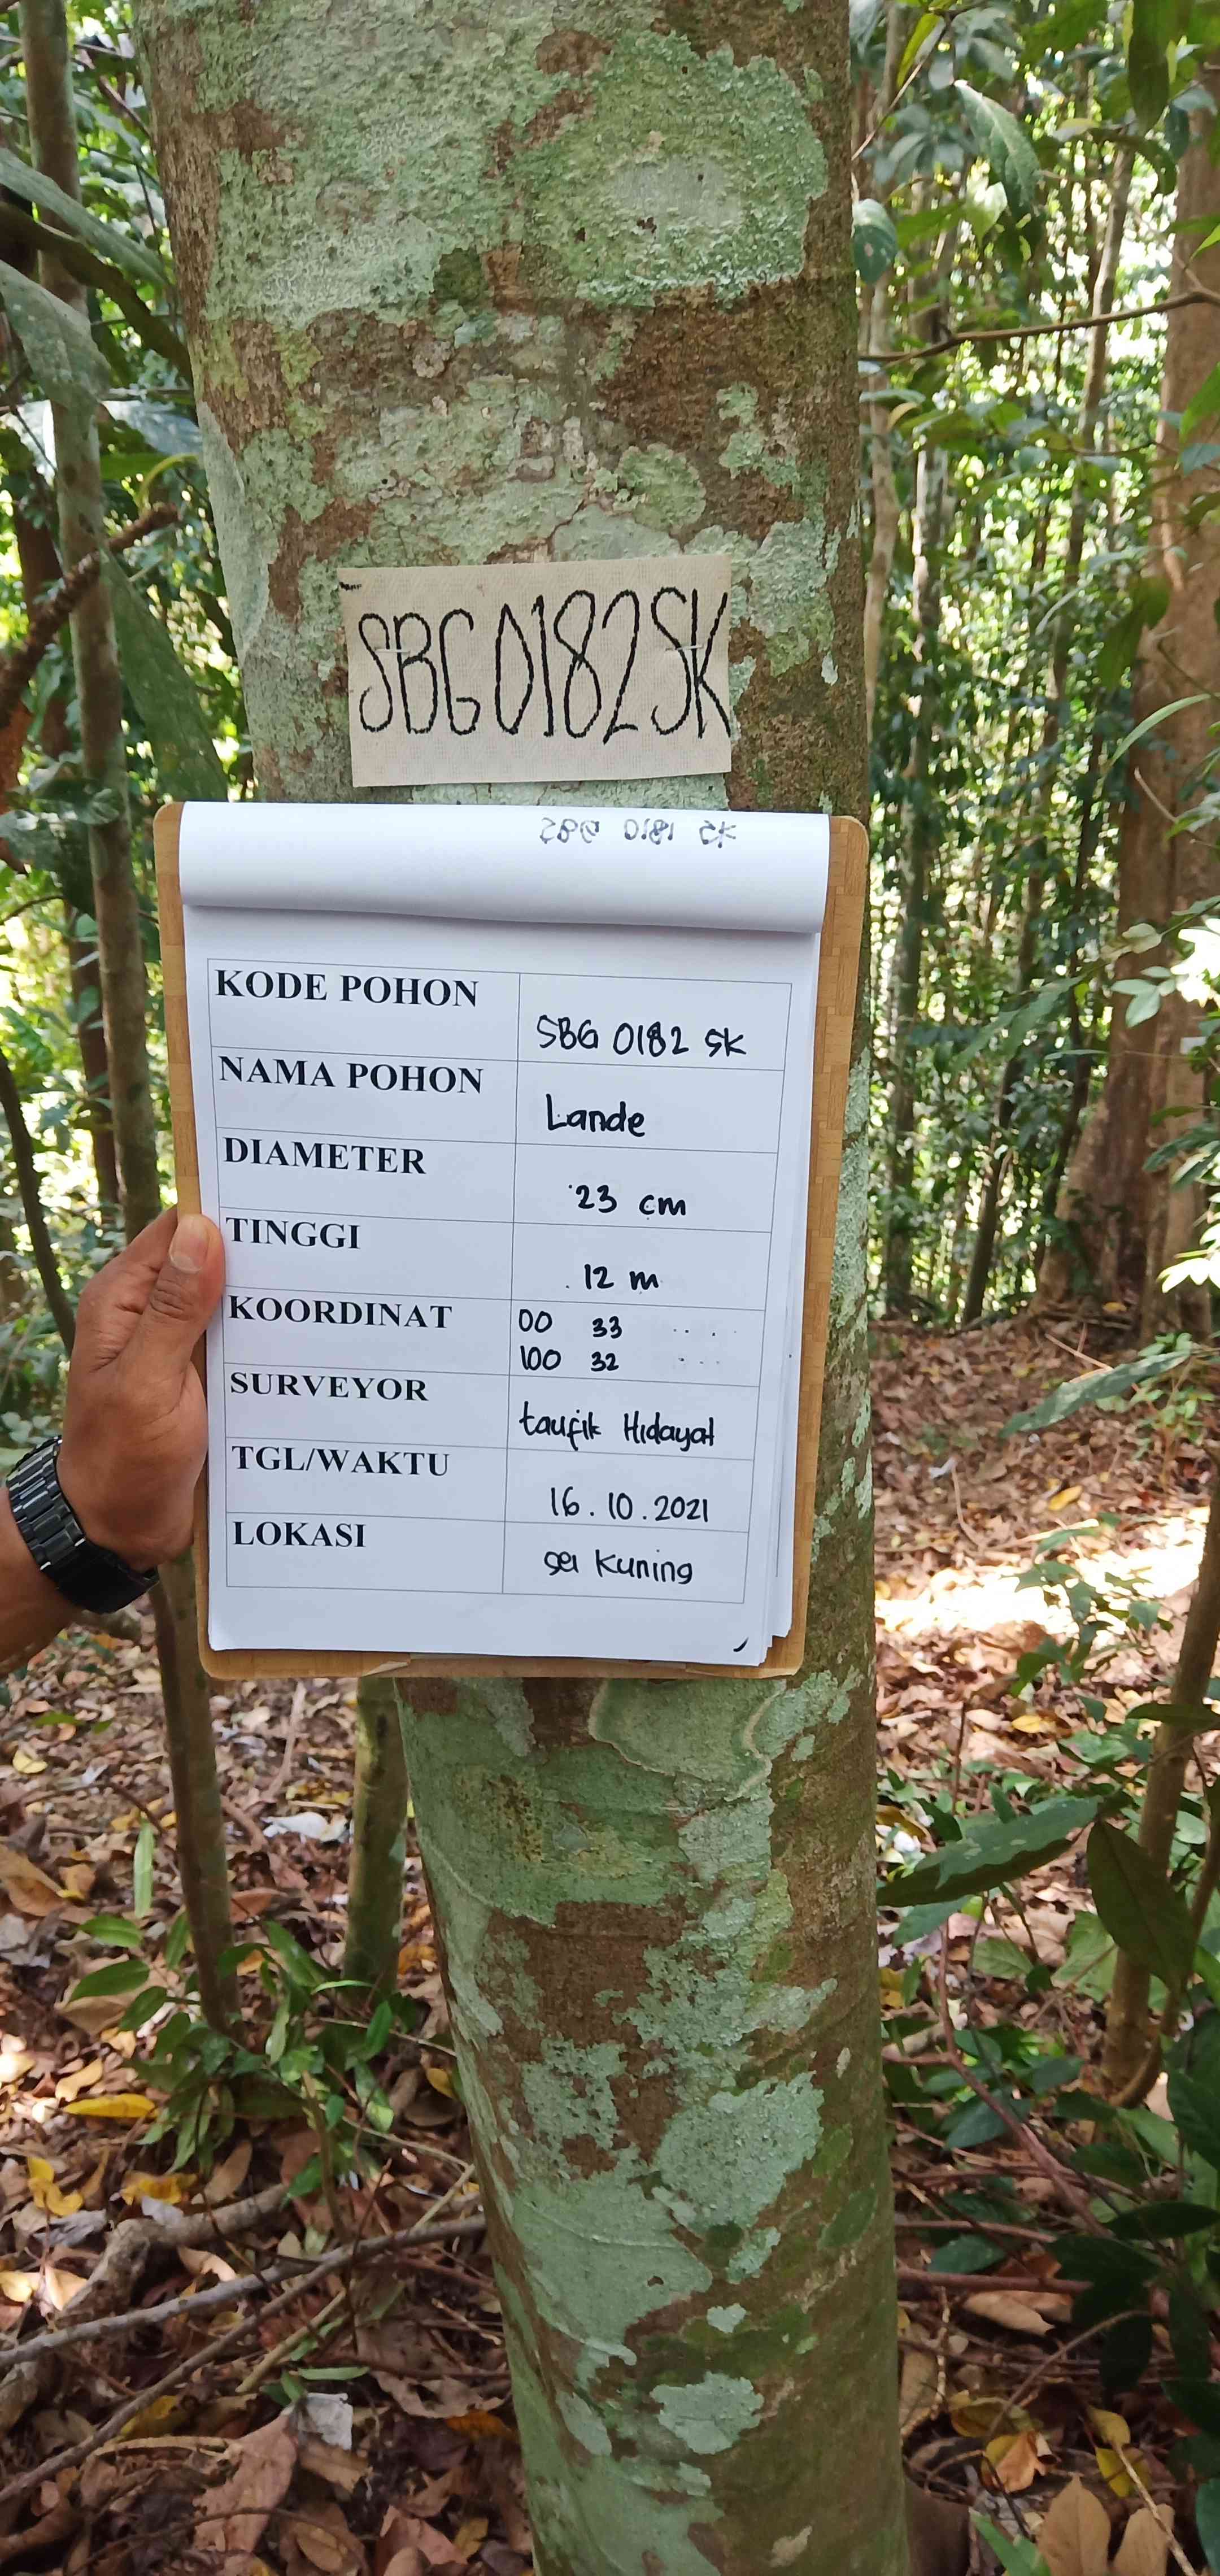 SBG0182SK
KODE POHON SBG 0182 SK
NAMA POHON Lande
DIAMETER 23 cm
TINGGI 12 m
KOORDINAT 00 33
100 32
SURVEYOR taufik Hidayat
TGL/WAKTU 16.10.2021
LOKASI sei Kuning